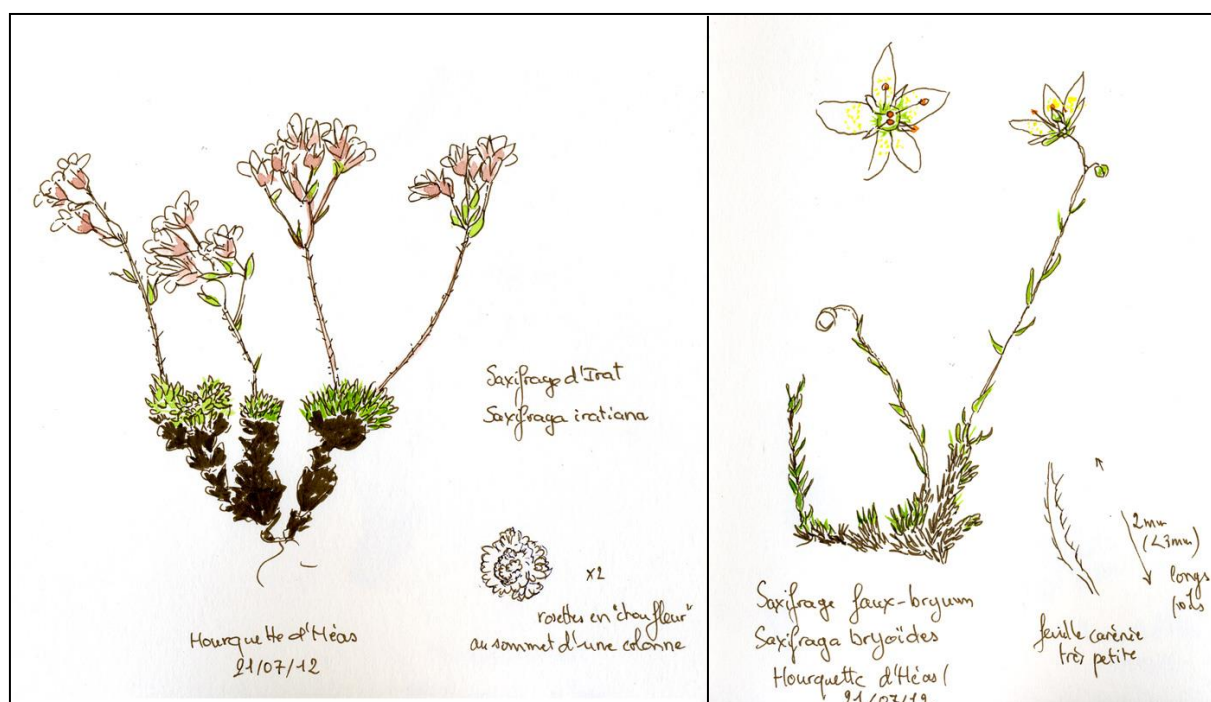 Saxifrage d'Irat
Saxifraga iratiana
x2
rosettes en "choufleur"
au sommet d'une colonne
Hourquette d'Héas
21/07/12
2mm
(<3mm)
longs
poils
Saxifrage faux-bryum
Saxifraga bryoïdes
Hourquette d'Héas/
21/07/12
feuille carénée
très petite